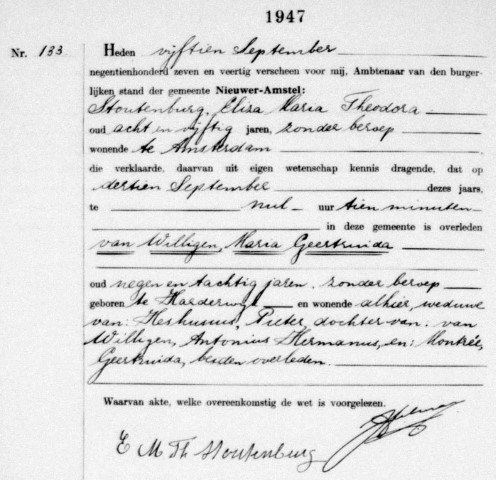 1947
Nr. 133
Heden vijftien September
negentienhonderd zeven en veertig verscheen voor mij, Ambtenaar van den burger-
lijken stand der gemeente Nieuwer-Amstel:
Stoutenburg, Eliza Maria Theodora
oud acht en vijftig jaren, zonder beroep
wonende te Amsterdam
die verklaarde, daarvan uit eigen wetenschap kennis dragende, dat op
dertien September dezes jaars,
te nul uur tien minuten
in deze gemeente is overleden
van Willigen, Maria Geertruida
oud negen en tachtig jaren, zonder beroep
geboren te Harderwijk en wonende alhier, weduwe
van: Heshusius, Pieter, dochter van: van
Willigen, Antonius Hermanus, en: Montrée,
Geertruida, beiden overleden.
Waarvan akte, welke overeenkomstig de wet is voorgelezen.
E M Th Stoutenburg